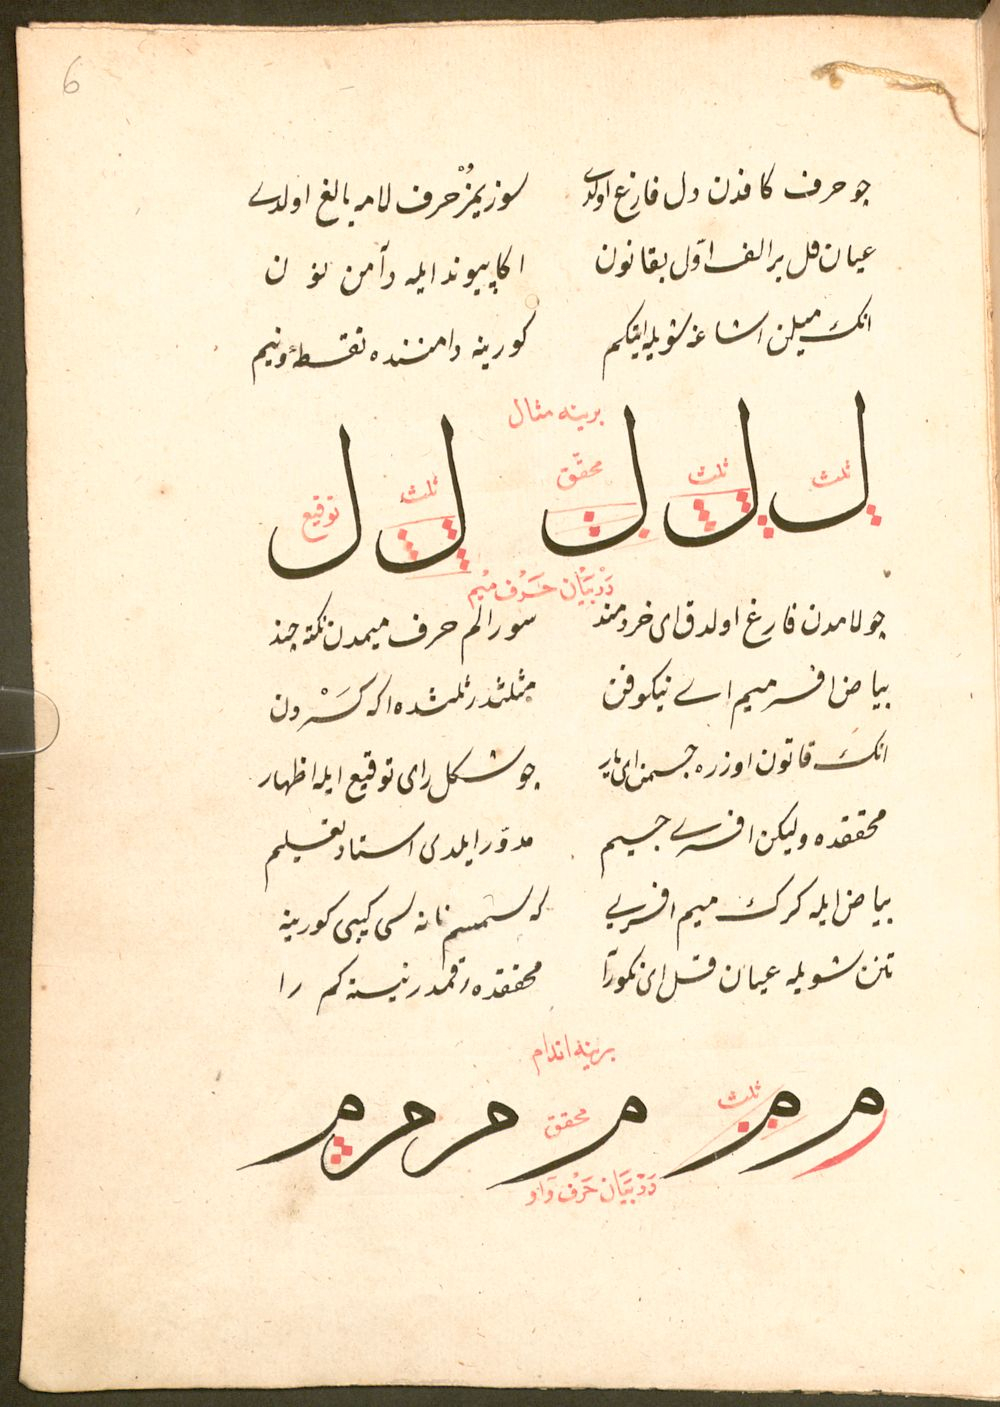 6
چو حرف کافدن دل فارغ اولدی سوزیمز حرف لامه بالغ اولدے
عیان قل بر الف اول بقانون اکا پیوند ایله دامن نون
انک میلن اشاغه شویله ایتکم کورینه دامننده نقطهٔ ونیم
برینه مثال
ثلث ثلث محقق ثلث توقیع
ل ل ل ل ل
در بیان حرف میم
چو لامدن فارغ اولدق ای خردمند سورالم حرف میمدن نکته چند
بیاض افسر میم اے نیکوفن مثلثدر ثلثده اکه
انک قانون اوزره جسمن ای یار چو شکل رای توقیع ایله اظهار
محققده ولیکن افسرے جیم مدور ایلدی استاد تعلیم
بیاض ایله کرک میم افسری که سمسم دانه سی کیبی کورینه
تنن شویله عیان قل ای نکورا محققده رقمدر نیسته کم را
برینه اندام
ثلث محقق
م م م م م م
در بیان حرف واو